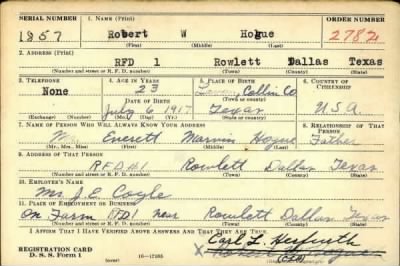 SERIAL NUMBER 1. NAME (Print) ORDER NUMBER
1857 Robert W Hogue 2782
(First) (Middle) (Last)
2. ADDRESS (Print)
RFD 1 Rowlett Dallas Texas
(Number and street or R. F. D. number) (Town) (County) (State)
3. TELEPHONE 4. AGE IN YEARS 5. PLACE OF BIRTH 6. COUNTRY OF CITIZENSHIP
None 23 Collin Co
DATE OF BIRTH (Town or county)
July 6, 1917 Texas U.S.A.
(Exchange) (Number) (Mo.) (Day) (Yr.) (State or country)
7. NAME OF PERSON WHO WILL ALWAYS KNOW YOUR ADDRESS 8. RELATIONSHIP OF THAT PERSON
Mr. Everett Marvin Hogue Father
(Mr., Mrs., Miss) (First) (Middle) (Last)
9. ADDRESS OF THAT PERSON
RFD#1 Rowlett Dallas Texas
(Number and street or R. F. D. number) (Town) (County) (State)
10. EMPLOYER'S NAME
Mr. J. C. Coyle
11. PLACE OF EMPLOYMENT OR BUSINESS
On Farm RFD1 near Rowlett Dallas Texas
(Number and street or R. F. D. number) (Town) (County) (State)
I AFFIRM THAT I HAVE VERIFIED ABOVE ANSWERS AND THAT THEY ARE TRUE.
Carl L.
REGISTRATION CARD
D. S. S. Form 1 (over) 16—17105 X